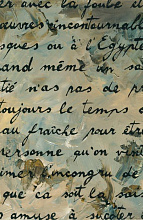 er avec la foule et
œuvres incontournable
sques ou à l'Egypte
and même un sa
tié n'as pas de pr
toujours le temps d
au fraîche pour étu
personne qu'on vin
imer l'incongru de
que ça soit la sais
s amuse à sucoter